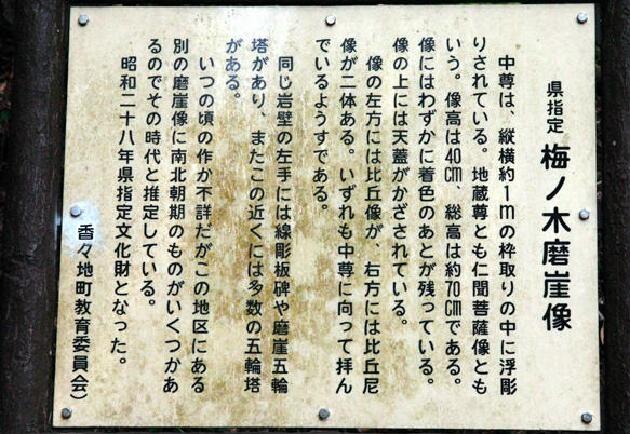 県指定 梅ノ木磨崖像
中尊は、縦横約1mの枠取りの中に浮彫
りされている。地蔵尊とも仁聞菩薩像とも
いう。像高は40㎝、総高は約70㎝である。
像にはわずかに着色のあとが残っている。
像の上には天蓋がかざされている。
像の左方には比丘像が、右方には比丘尼
像が二体ある。いずれも中尊に向って拝ん
でいるようすである。
同じ岩壁の左手には線彫板碑や磨崖五輪
塔があり、またこの近くには多数の五輪塔
がある。
いつの頃の作か不詳だがこの地区にある
別の磨崖像に南北朝期のものがいくつかあ
るのでその時代と推定している。
昭和二十八年県指定文化財となった。
香々地町教育委員会)